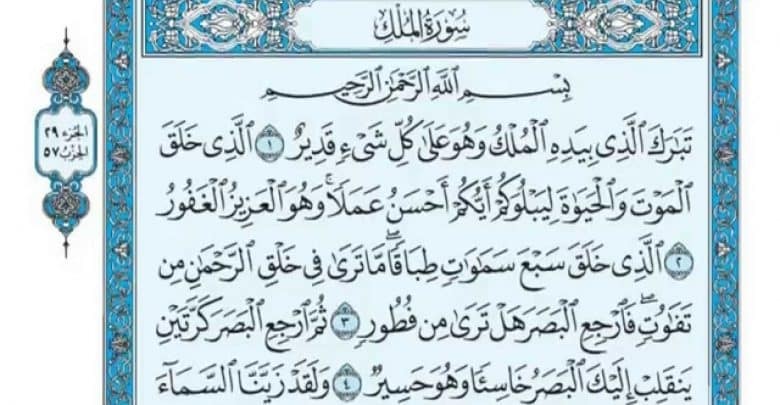 سُورَةُ المُلْكِ
الجزء ٢٩
الحزب ٥٧
بِسْمِ ٱللَّهِ ٱلرَّحْمَٰنِ ٱلرَّحِيمِ
تَبَٰرَكَ ٱلَّذِى بِيَدِهِ ٱلْمُلْكُ وَهُوَ عَلَىٰ كُلِّ شَىْءٍ قَدِيرٌ ١ ٱلَّذِى خَلَقَ
ٱلْمَوْتَ وَٱلْحَيَوٰةَ لِيَبْلُوَكُمْ أَيُّكُمْ أَحْسَنُ عَمَلًا ۚ وَهُوَ ٱلْعَزِيزُ ٱلْغَفُورُ
٢ ٱلَّذِى خَلَقَ سَبْعَ سَمَٰوَٰتٍ طِبَاقًا ۖ مَّا تَرَىٰ فِى خَلْقِ ٱلرَّحْمَٰنِ مِن
تَفَٰوُتٍ ۖ فَٱرْجِعِ ٱلْبَصَرَ هَلْ تَرَىٰ مِن فُطُورٍ ٣ ثُمَّ ٱرْجِعِ ٱلْبَصَرَ كَرَّتَيْنِ
يَنقَلِبْ إِلَيْكَ ٱلْبَصَرُ خَاسِئًا وَهُوَ حَسِيرٌ ٤ وَلَقَدْ زَيَّنَّا ٱلسَّمَآءَ